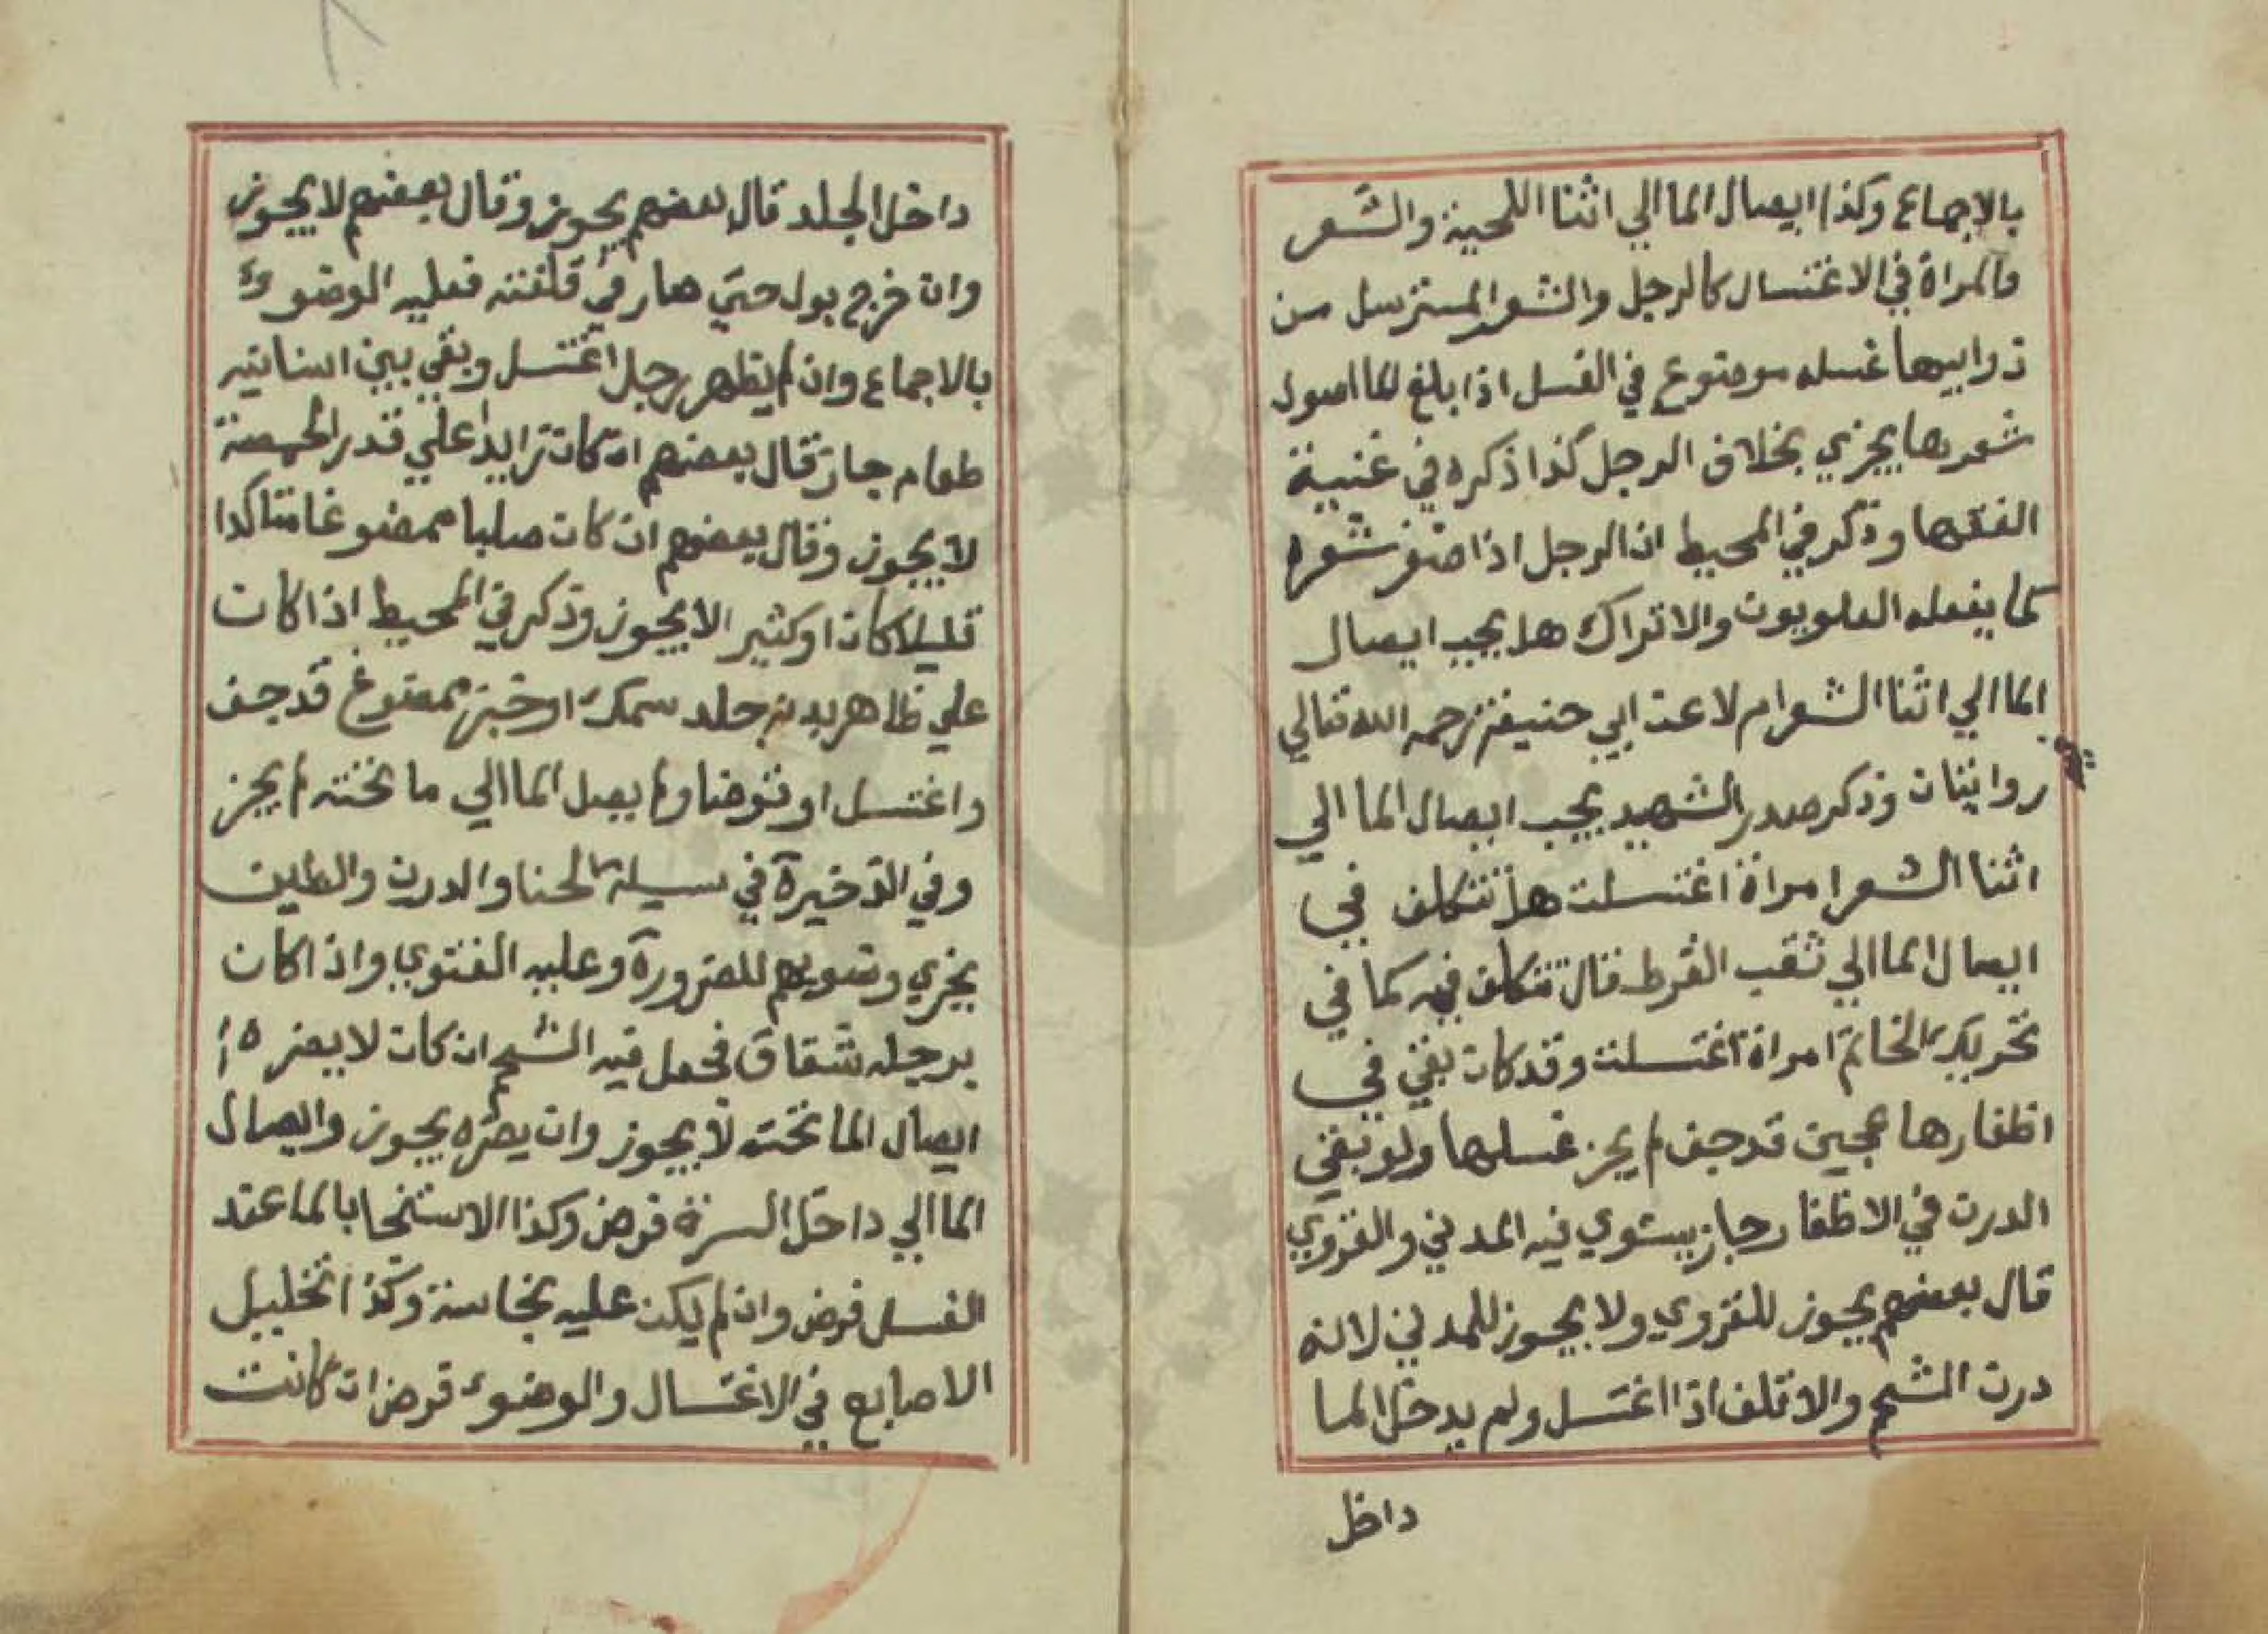 بالاجماع وكذا ايصال الما الي اثنا اللحية والشعر
والمراة في الاغتسال كالرجل والشعر المسترسل من
ذوايبها غسله موضوع في الغسل اذا بلغ الما اصول
شعرها يجزي بخلاف الرجل كذا ذكره في غنيبة
الفقها وذكر في المحيط ان الرجل اذا ضفر شعره
كما يفعله العلويون والاتراك هل يجب ايصال
الما الي اثنا الشعر ام لا عند ابي حنيفة رحمه الله تعالي
روايتان وذكر صدر الشهيد يجب ايصال الما الي
اثنا الشعر امراة اغتسلت هل تتكلف في
ايصال الما الي ثقب القرط قال تتكلف فيه كما في
تحريك الخاتم امراة اغتسلت وقد كان بقي في
اظفارها عجين قد جف لم يجز غسلها ولو بقي
الدرن في الاظفار جاز يستوي فيه المدني والقروي
قال بعضهم يجوز للقروي ولا يجوز للمدني لانه
درن الشحم والاقلف اذا اغتسل ولم يدخل الما
داخل
داخل الجلد قال بعضهم يجوز وقال بعضهم لا يجوز
وان خرج بول حتي صار في قلفته فعليه الوضوء
بالاجماع وان لم يظهر رجل اغتسل وبقي بين اسنانه
طعام جاز قال بعضهم ان كان زايدا علي قدر الحمصة
لا يجوز وقال بعضهم ان كان صلبا ممضوغا متاكدا
قليلا كان او كثير الا يجوز وذكر في المحيط اذا كان
علي ظاهر بدنه جلد سمك او خبز ممضوغ قد جف
واغتسل او توضا ولم يصل الما الي ما تحته لم يجز
وفي الذخيرة في مسيلة الحنا والدرن والطين
يجزي وضويهم للضرورة وعليه الفتوي واذا كان
برجله شقاق فجعل فيه الشحم ان كان لا يضره
ايصال الما تحته لا يجوز وان يضره يجوز وايصال
الما الي داخل السرة فرض وكذا الاستنجا بالما عند
الغسل فرض وان لم يكن عليه نجاسة وكذا تخليل
الاصابع في الاغتسال والوضوء فرض ان كانت